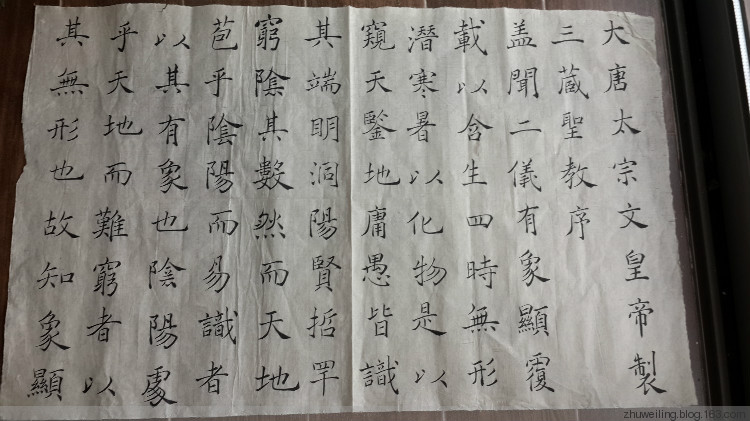 大唐太宗文皇帝製
三蔵聖教序
盖聞二儀有象顯覆
載以含生四時無形
潛寒暑以化物是以
窺天鑒地庸愚皆識
其端明洞陽賢哲罕
窮陰其數然而天地
苞乎陰陽而易識者
以其有象也陰陽處
乎天地而難窮者以
其無形也故知象顯
zhuweiling.blog.163.com